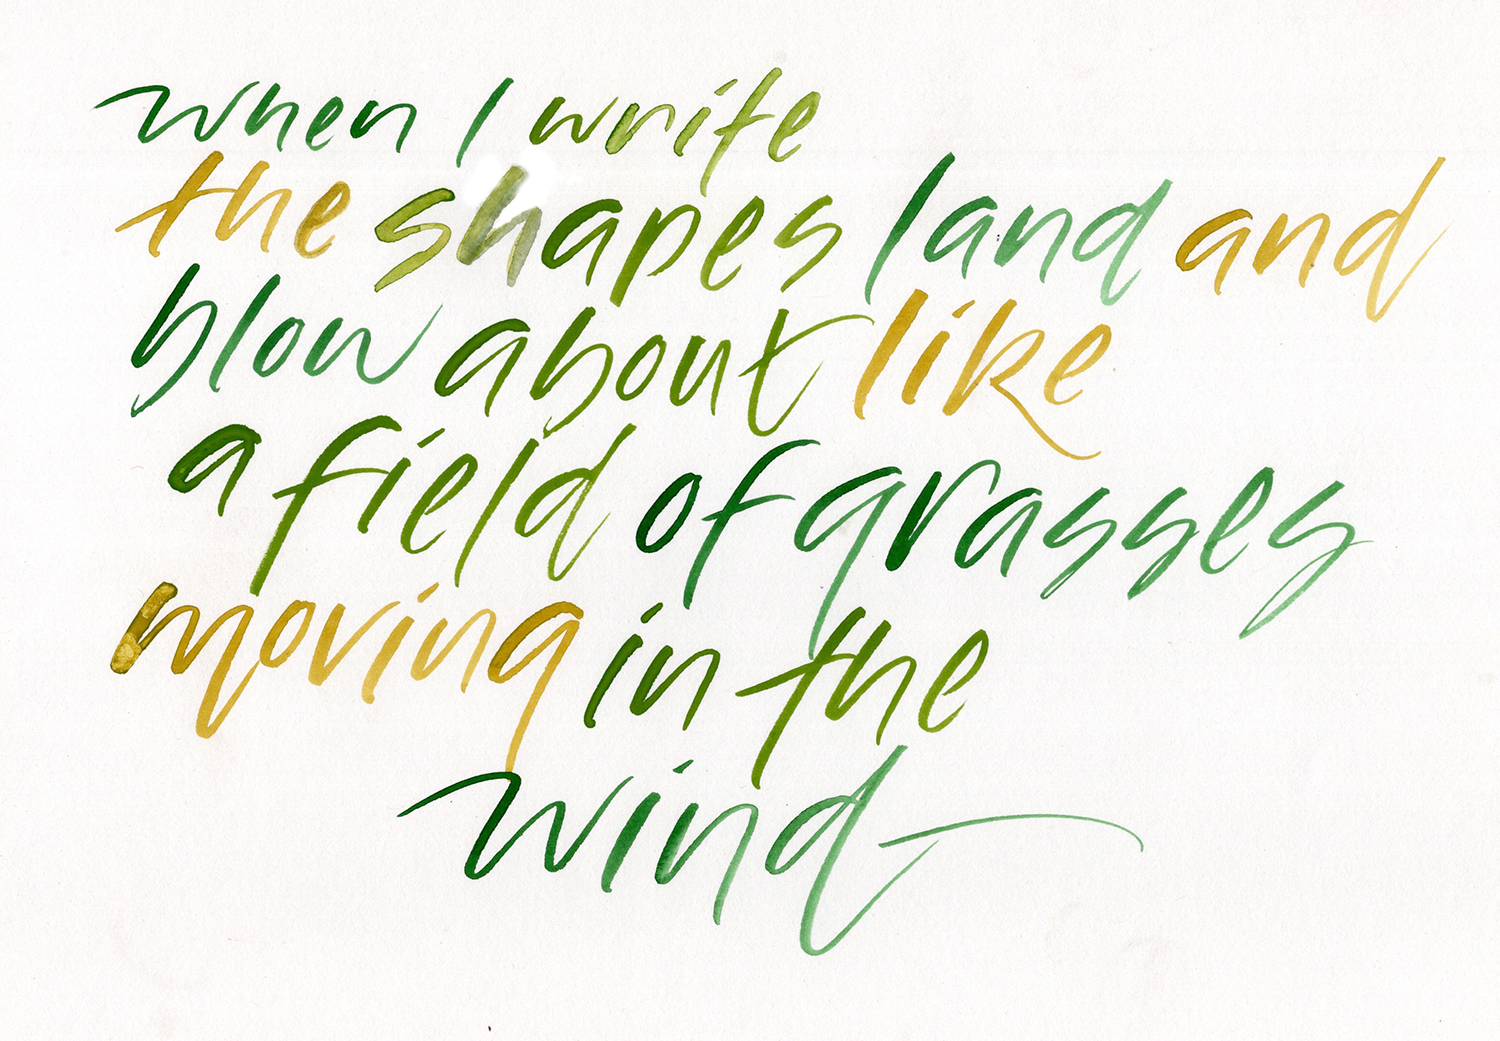 when I write
the shapes land and
blow about like
a field of grasses
moving in the
wind